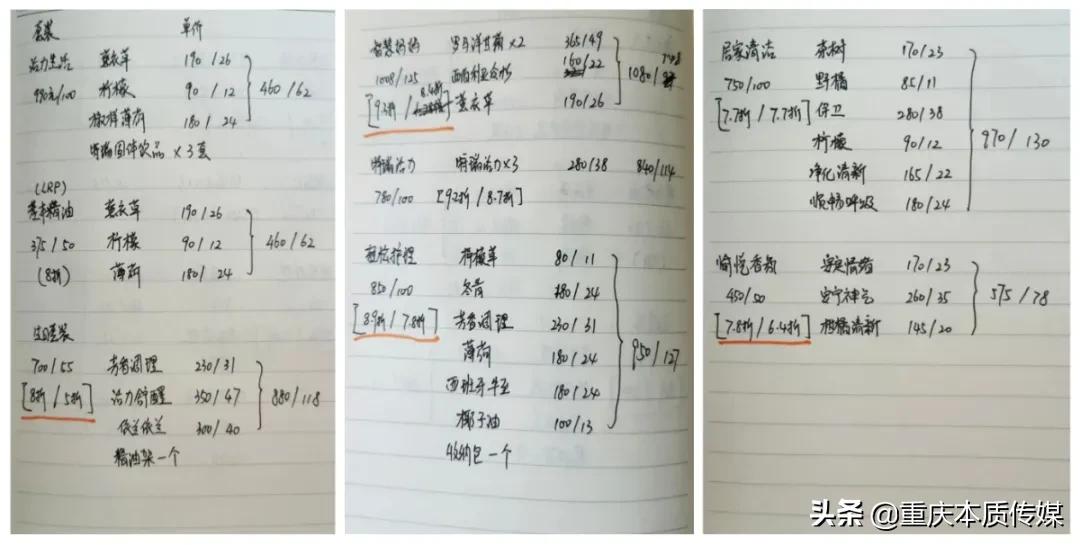 套装 单价
活力生活 薰衣草 190/26
980元/100 柠檬 90/12 460/62
椒样薄荷 180/24
特瑞固体饮品×3盒
(LRP)
基本精油 薰衣草 190/26
375/50 柠檬 90/12 460/62
(8折) 薄荷 180/24
过日套装
700/55 芳香调理 230/31
[8折/5折] 活力舒醒 350/47 880/118
依兰依兰 300/40
精油架一个
智慧妈妈 罗马洋甘菊×2 365/49
1008/125 西伯利亚冷杉 160/22 1080/
[93折/8.4折] 薰衣草 190/26
特瑞活力 特瑞活力×3 280/38 840/114
780/100 [92折/8.7折]
柠檬草 80/11
850/100 冬青 180/24
[8.9折/7.8折] 芳香调理 230/31
薄荷 180/24 950/127
西班牙牛至 180/24
椰子油 100/13
收纳包一个
居家清洁 茶树 170/23
750/100 野橘 85/11
[7.7折/7.7折] 保卫 280/38
柠檬 90/12 970/130
净化清新 165/22
顺畅呼吸 180/24
愉悦香氛 安定情绪 170/23
450/50 安宁神气 260/35 575/78
[7.8折/6.4折] 柑橘清新 145/20
头条 @重庆本质传媒